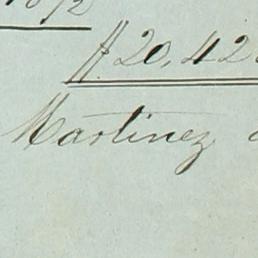 $ 20,42
Martinez